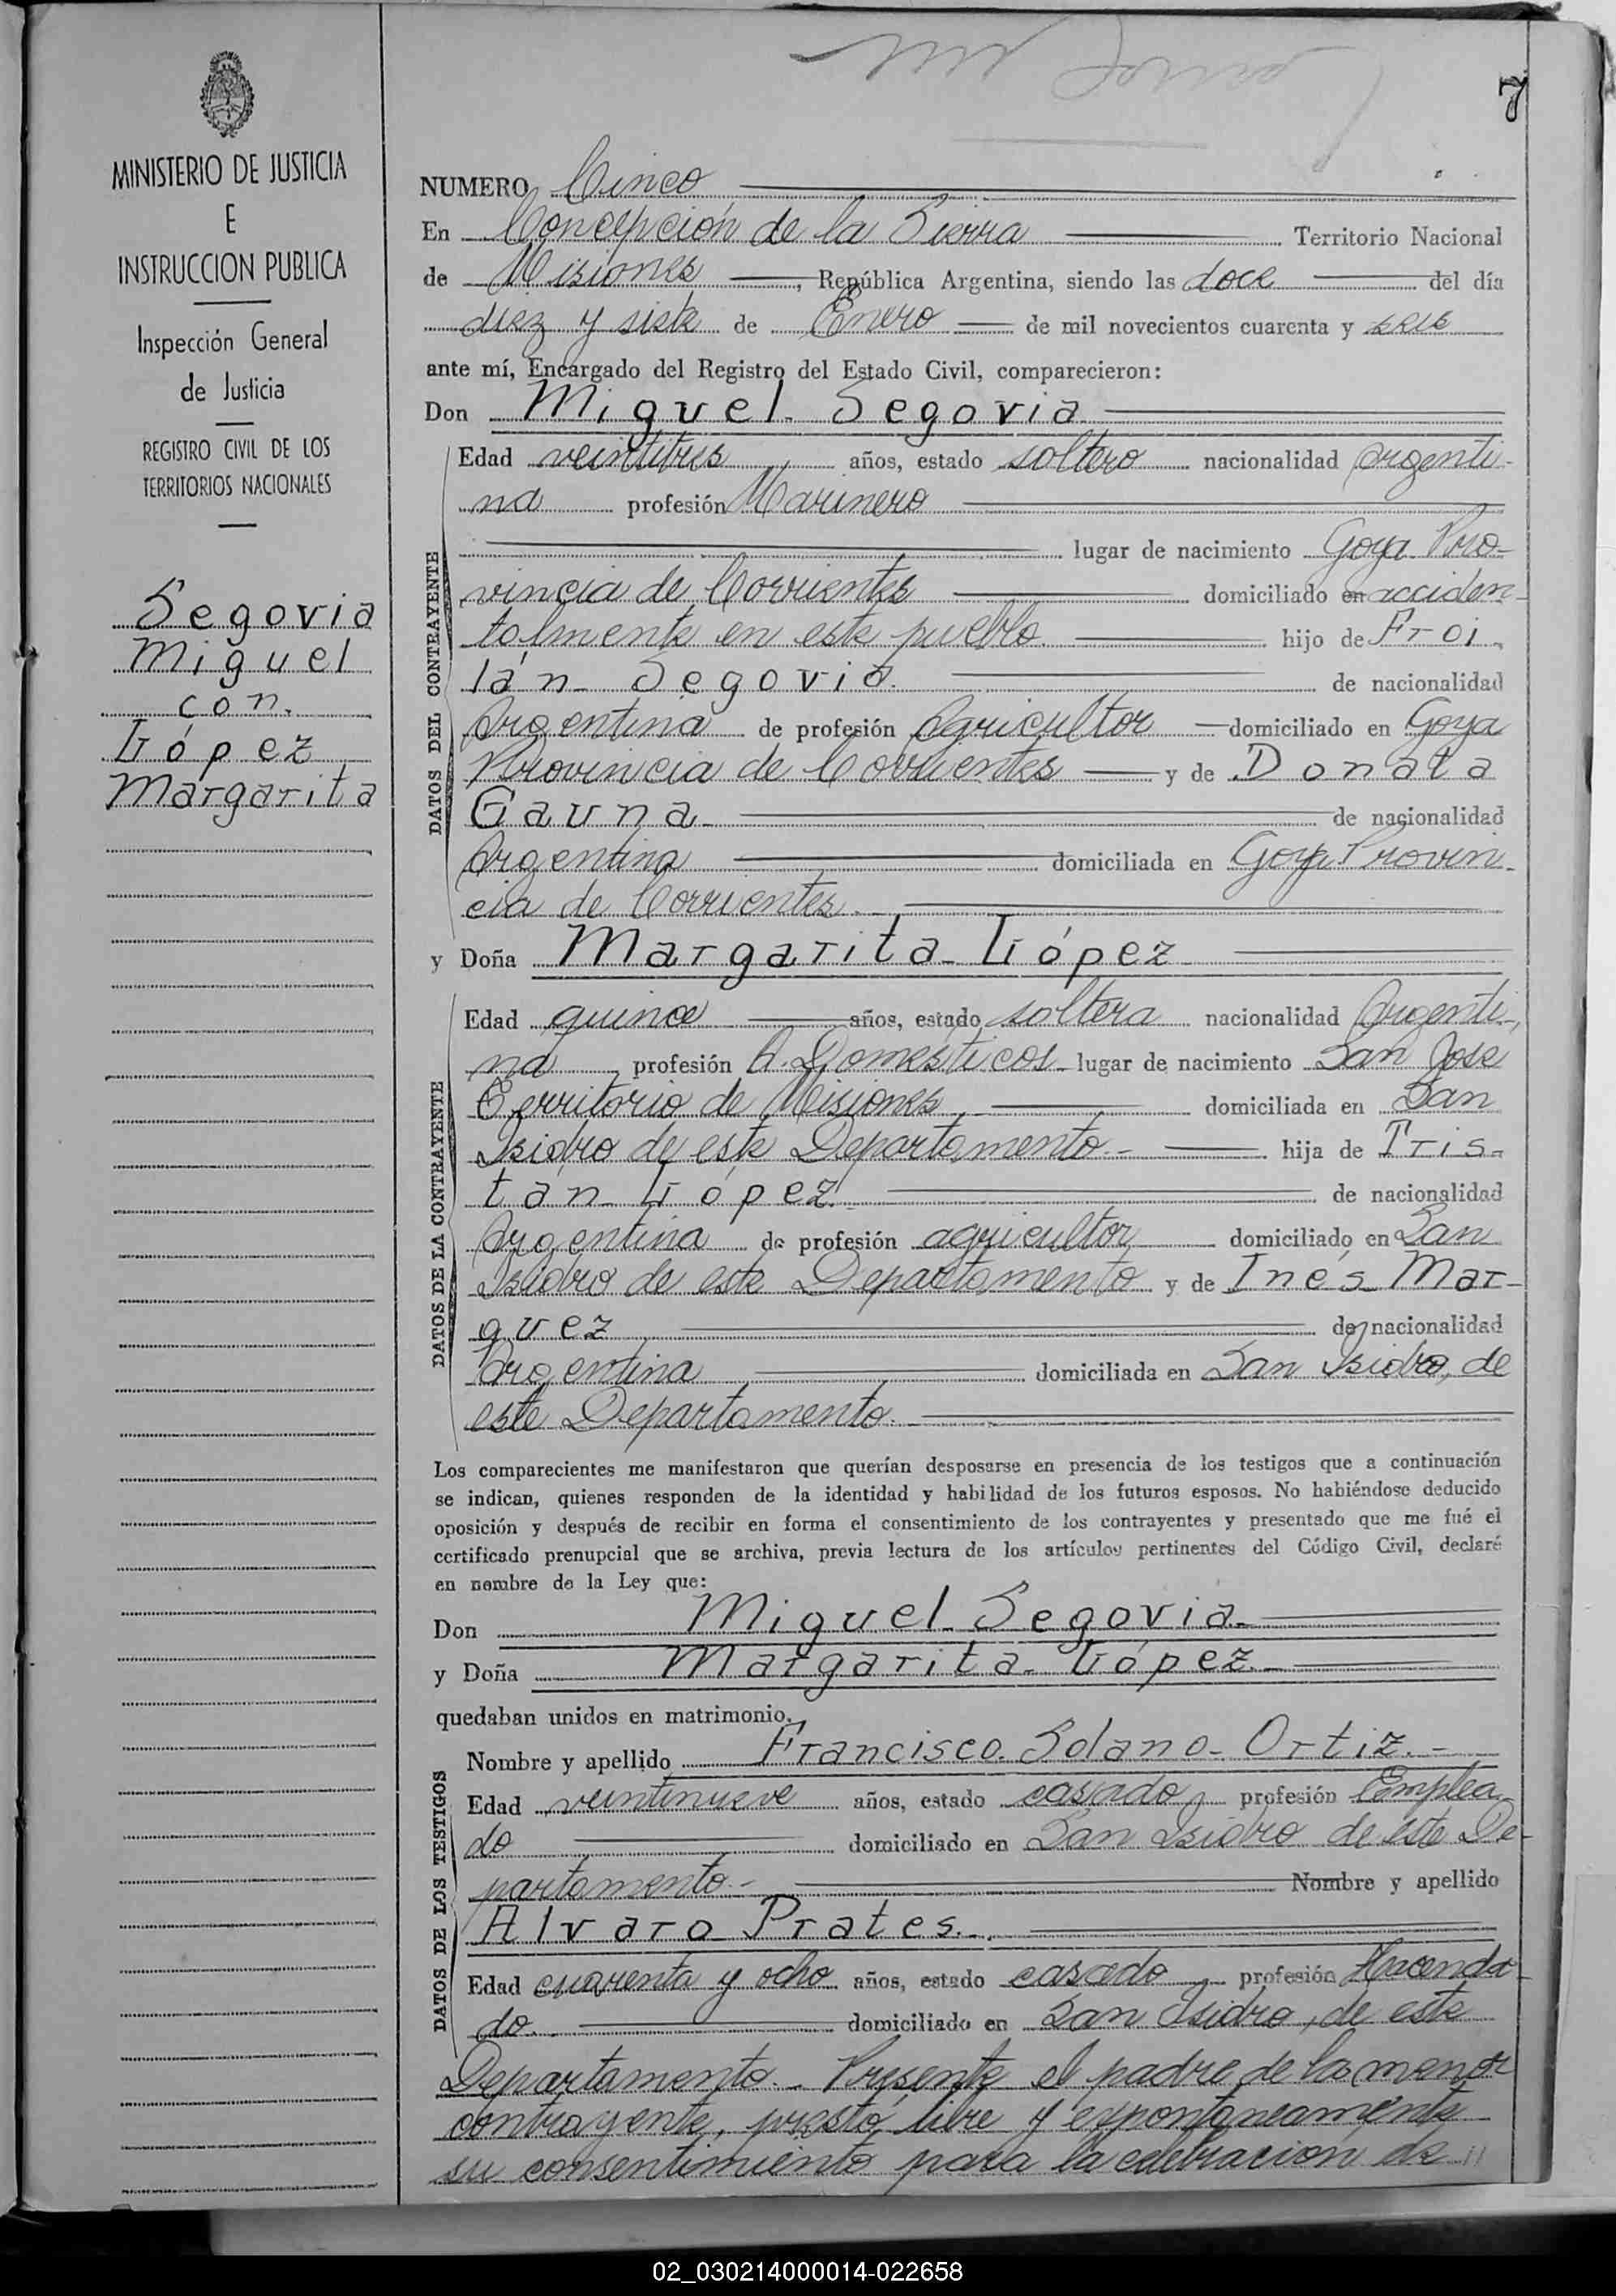 7
MINISTERIO DE JUSTICIA
E
INSTRUCCION PUBLICA
Inspección General
de Justicia
REGISTRO CIVIL DE LOS
TERRITORIOS NACIONALES
Segovia
Miguel
con.
López
Margarita
NUMERO Cinco
En Concepción de la Sierra Territorio Nacional
de Misiones, República Argentina, siendo las doce del día
diez y siete de Enero de mil novecientos cuarenta y seis
ante mí, Encargado del Registro del Estado Civil, comparecieron:
Don Miguel Segovia
DATOS DEL CONTRAYENTE
Edad veintitres años, estado soltero nacionalidad Argenti-
na profesión Marinero
lugar de nacimiento Goya Pro-
vincia de Corrientes domiciliado en acciden-
talmente en este pueblo. hijo de Froi-
lán Segovia. de nacionalidad
Argentina de profesión Agricultor domiciliado en Goya
Provincia de Corrientes y de Donata
Gauna de nacionalidad
Argentina domiciliada en Goya Provin-
cia de Corrientes.
y Doña Margarita López
DATOS DE LA CONTRAYENTE
Edad quince años, estado soltera nacionalidad Argenti-
na profesión Q. Domésticos lugar de nacimiento San José
Territorio de Misiones domiciliada en San
Isidro de este Departamento.- hija de Tris-
tan López. de nacionalidad
Argentina de profesión agricultor domiciliado en San
Isidro de este Departamento y de Inés Mar-
quez de nacionalidad
Argentina domiciliada en San Isidro, de
este Departamento.
Los comparecientes me manifestaron que querían desposarse en presencia de los testigos que a continuación
se indican, quienes responden de la identidad y habilidad de los futuros esposos. No habiéndose deducido
oposición y después de recibir en forma el consentimiento de los contrayentes y presentado que me fué el
certificado prenupcial que se archiva, previa lectura de los artículos pertinentes del Código Civil, declaré
en nombre de la Ley que:
Don Miguel Segovia
y Doña Margarita López.
quedaban unidos en matrimonio.
DATOS DE LOS TESTIGOS
Nombre y apellido Francisco Solano Ortiz.-
Edad veintinueve años, estado casado profesión Emplea-
do domiciliado en San Isidro de este De-
partamento.- Nombre y apellido
Alvaro Prates.
Edad cuarenta y ocho años, estado casado profesión Hacenda-
do. domiciliado en San Isidro, de este
Departamento.- Presente el padre de la menor
contrayente, prestó libre y expontaneamente
su consentimiento para la celebración de //
02_030214000014-022658